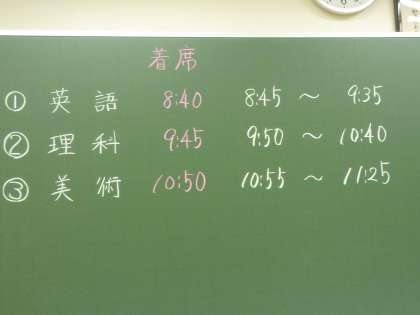 着席
① 英語 8:40 8:45 ～ 9:35
② 理科 9:45 9:50 ～ 10:40
③ 美術 10:50 10:55 ～ 11:25